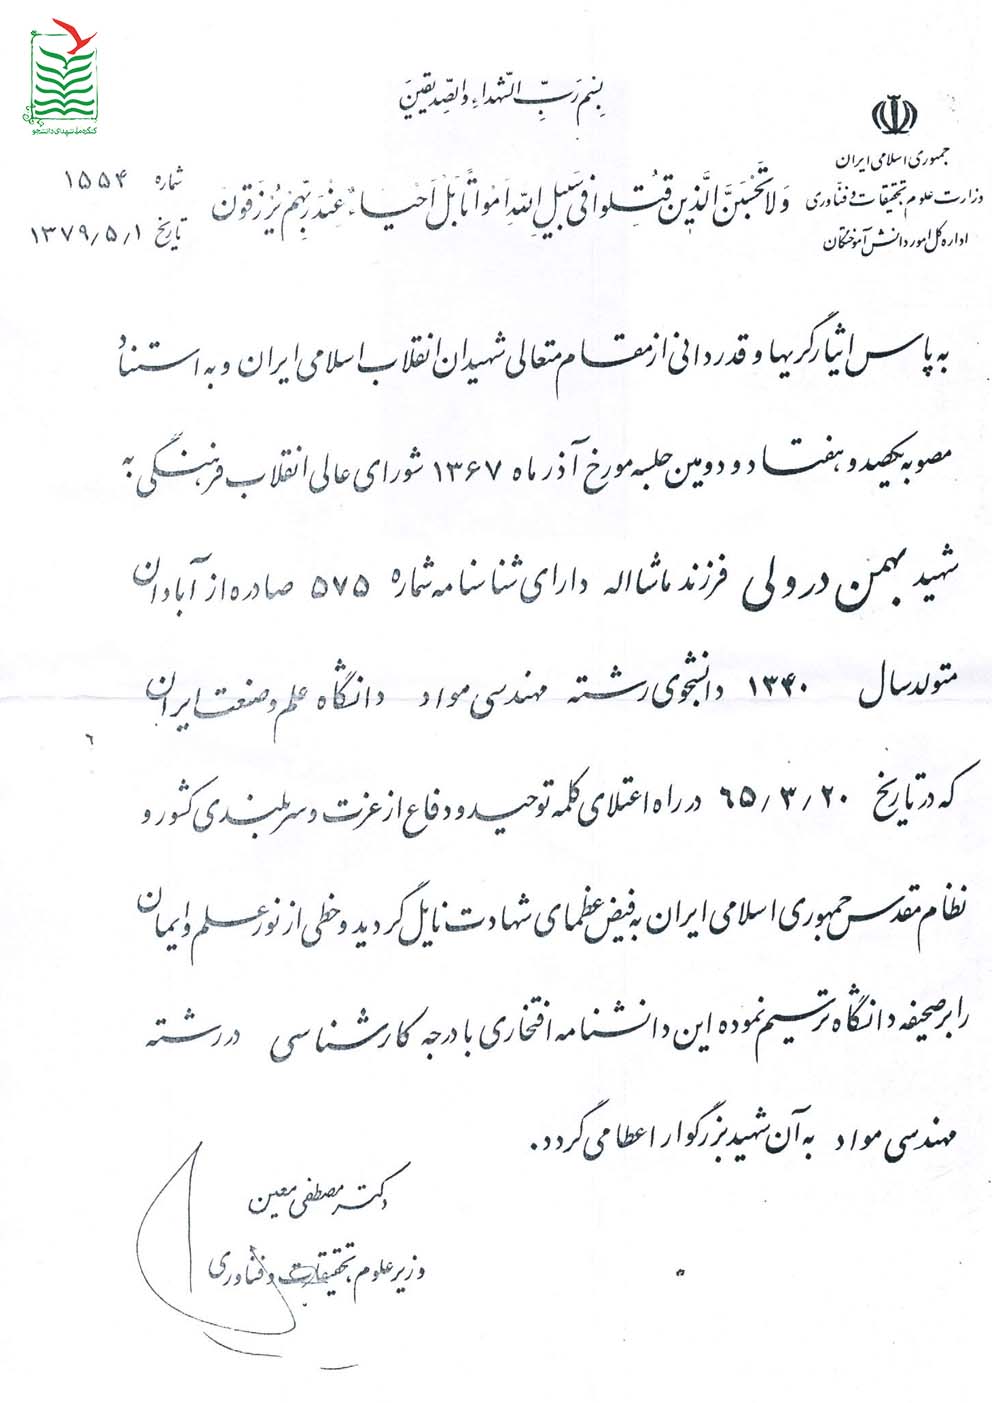 کنگره ملی شهدای دانشجو
بِسْمِ رَبِّ الشُّهداءِ وَ الصِّدیقینَ
جمهوری اسلامی ایران
وزارت علوم تحقیقات و فنّاوری
اداره کل امور دانش آموختگان
شماره ۱۵۵۴
تاریخ ۱۳۷۹/۵/۱
وَ لا تَحْسَبَنَّ الَّذینَ قُتِلوا فی سَبیلِ اللهِ اَمْواتاً بَلْ اَحْیاءٌ عِنْدَ رَبِّهِمْ یُرْزَقون
به پاس ایثارگریها و قدردانی از مقام متعالی شهیدان انقلاب اسلامی ایران و به استناد
مصوبه یکصد و هفتاد و دومین جلسه مورخ آذر ماه ۱۳۶۷ شورای عالی انقلاب فرهنگی به
شهید بهمن درولی فرزند ماشااله دارای شناسنامه شماره ۵۷۵ صادره از آبادان
متولد سال ۱۳۴۰ دانشجوی رشته مهندسی مواد دانشگاه علم و صنعت ایران
که در تاریخ ۶۵/۳/۲۰ در راه اعتلای کلمه توحید و دفاع از عزت و سربلندی کشور و
نظام مقدس جمهوری اسلامی ایران به فیض عظمای شهادت نایل گردید و خطی از نور علم و ایمان
را بر صحیفه دانشگاه ترسیم نموده این دانشنامه افتخاری با درجه کارشناسی در رشته
مهندسی مواد به آن شهید بزرگوار اعطا می گردد.
دکتر مصطفی معین
وزیر علوم، تحقیقات و فنّاوری